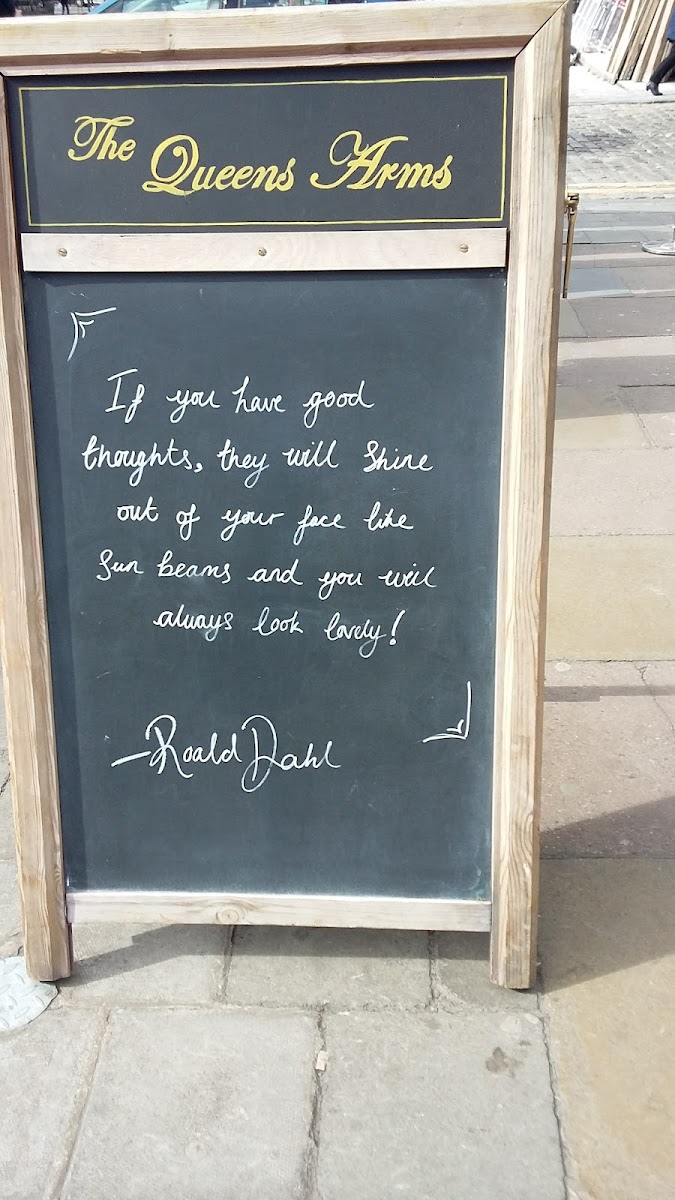 The Queens Arms
If you have good
thoughts, they will shine
out of your face like
sun beams and you will
always look lovely!
—Roald Dahl